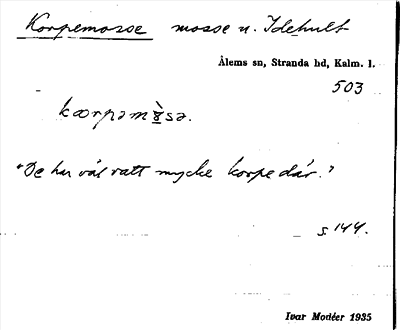 Korpemosse mosse u. Idehult
Ålems sn, Stranda hd, Kalm. l.
503
kærpəmòsə.
"De har väl vatt mycke korpe där."
s 144.
Ivar Modéer 1935